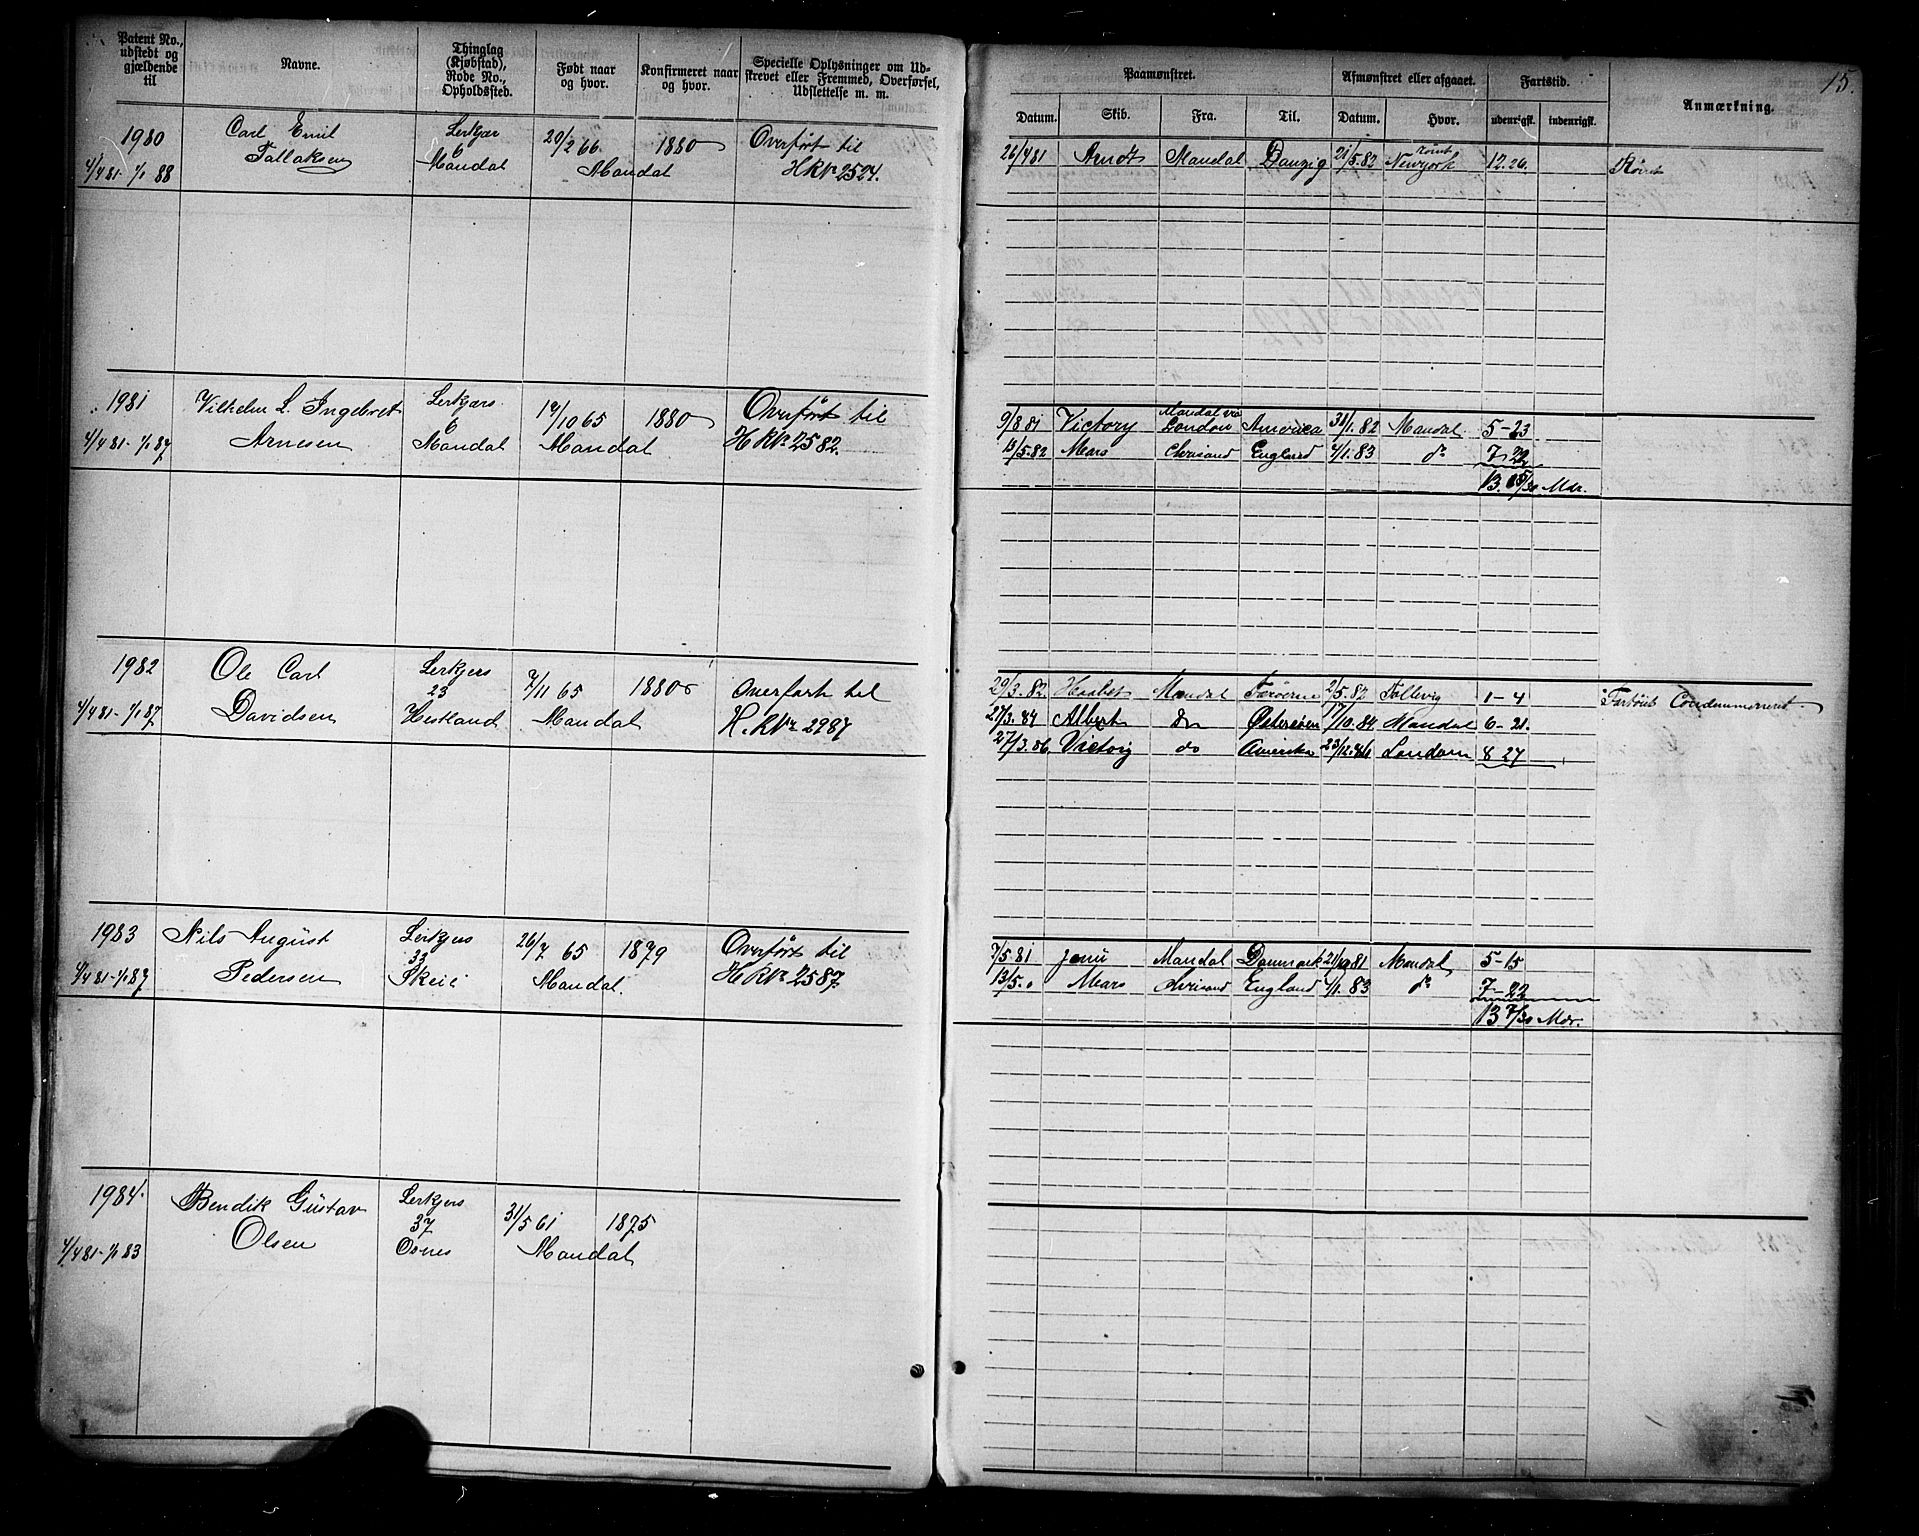 Patent No., udstedt og gjældende til
Navne.
Thinglag (Kjøbstad), Rode No., Opholdssted.
Født naar og hvor.
Konfirmeret naar og hvor.
Specielle Oplysninger om Udskrevet eller Fremmed, Overførsel, Udslettelse m. m.
Paamønstret.
Afmønstret eller afgaaet.
Fartstid.
Anmærkning.
15.
Datum. Skib. Fra. Til. Datum. Hvor. udenrigsk. indenrigsk.
1980 Carl Emil Lerkjær 20/2 66 1880 Overført til
Tallaksen 6
4/4 81 - 1/1 88 Mandal Mandal HRNr 2524.
26/4 81 Arndt Mandal Danzig 21/5.82 rømt Newyork 12.26. Rømt
1981 Vilhelm L. Ingebret Lerkjærs 14/10 65 1880 Overført til
6
4/4 81 - 1/1 87 Arnesen Mandal Mandal HRNr 2582.
9/8 81 Victory Mandal via London America 31/1.82 Mandal 5-23
13/5.82 Mars Chrisand England 4/1.83 do 7-22
13. 15/30 Mdr.
1982 Ole Carl Lerkjers 7/11 65 1880 Overført til
23
4/4 81 - 1/1 87 Davidsen Hestland Mandal H.RNr 2987
29/3.82 Haabet Mandal Færøerne 2/5.82 Tallevig 1-4 Forløist Condemneret
27/3.84 Albert do Østersøen 17/10.84 Mandal 6-21.
27/3.86 Victory do Amerika 23/12.86 London 8 27
1983 Nils August Lerkjers 26/7 65 1879 Overført til
33
4/4 81 - 1/1 87 Pedersen Skeie Mandal. HRNr 2587.
7/5.81 Mandal Danmark 21/10 81 Mandal 5-15
13/5. Mars Chrisand England 4/1.83 do 7-22
13 7/30 Mdr.
1984. Bendik Gustav Lerkjers 31/5 61 1875
37
4/4 81 - 1/1 83 Olsen Mandal